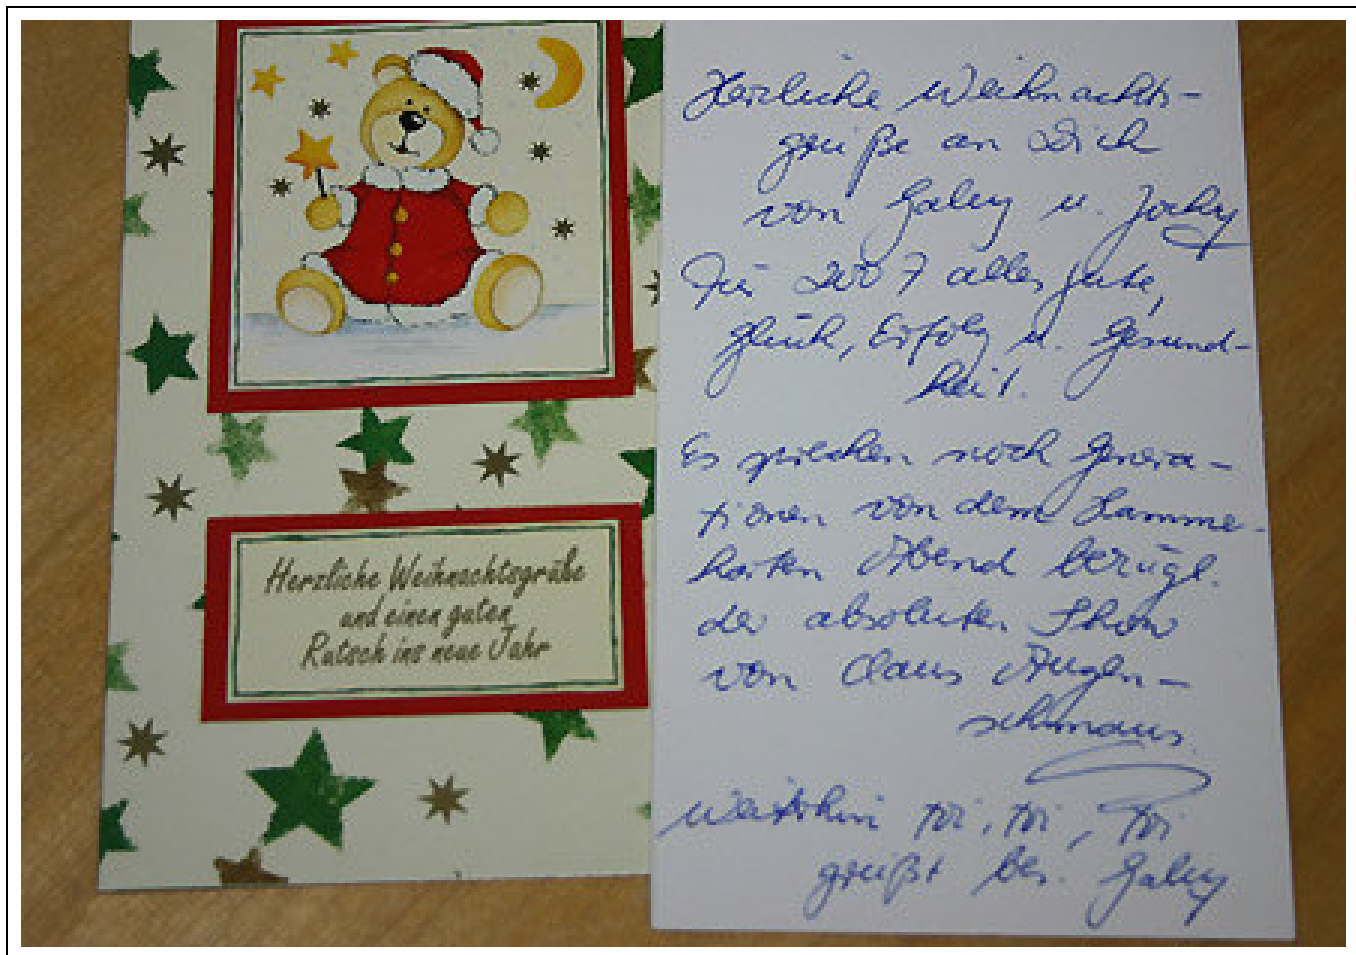 Herzliche Weihnachtsgrüße
und einen guten
Rutsch ins neue Jahr
Herzliche Weihnachts-
grüße an Dich
von Gaby u. Jocky
Für 2007 alles gute,
glück, Erfolg u. Gesund-
heit.
Es sprechen noch Genera-
tionen von dem
Abend bezügl.
der absoluten Show
von Claus Augen-
schmaus.
Weiterhin toi, toi, toi
grüßt bes. Gaby